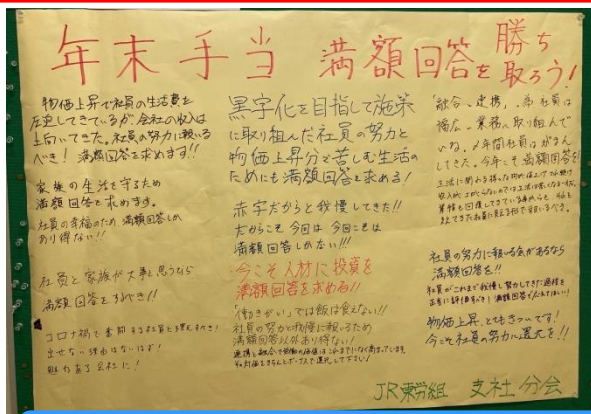 年末手当 満額回答を勝ち取ろう!
物価上昇で社員の生活費を
圧迫してきているが、会社の収入は
上向いてきた。社員の努力に報いる
べき! 満額回答を求めます!!
家族の生活を守るため
満額回答を求めます。
社員の幸福のため満額回答しか
あり得ない!!
社員と家族が大事と思うなら
満額回答をするべき!!
コロナ禍で奮闘する社員を
出せない理由はないはず!
黒字化を目指して施策
に取り組んだ社員の努力と
物価上昇分で苦しむ生活の
ためにも満額回答を求める!
赤字だからと我慢してきた!!
だからこそ今回は 今回こそは
満額回答しかない!!!
今こそ人材に投資を
満額回答を求める!!
「働きがい」では飯は食えない!!
社員の努力と我慢に報いるため
満額回答以外あり得ない!
連携と融合で労働の価値はこれまでになく高まっています
その対価をきちんとボーナスで還元して下さい!
融合、連携、
幅広い業務に取り組んで
いる。2年間社員はがまん
してきた。今年こそ満額回答を!
社員の努力に報いる気があるなら
満額回答を!!
社員がこれまで我慢し努力してきた過程を
正当に評価すべき!
物価上昇、とてもきついです!
今こそ社員の努力に還元を!!
JR東労組 支社分会